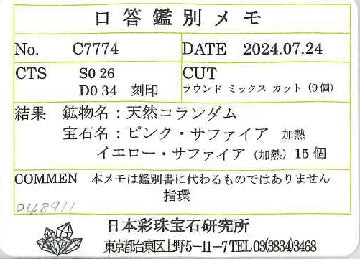 口答鑑別メモ
No. C7774 DATE 2024.07.24
CTS S0.26 CUT
D0.34 刻印 ラウンド ミックス カット (9個)
結果 鉱物名:天然コランダム
宝石名:ピンク・サファイア 加熱
イエロー・サファイア (加熱) 15個
COMMEN 本メモは鑑別書に代わるものではありません
指環
日本彩珠宝石研究所
東京都台東区上野5-11-7 TEL 03(3834)3468